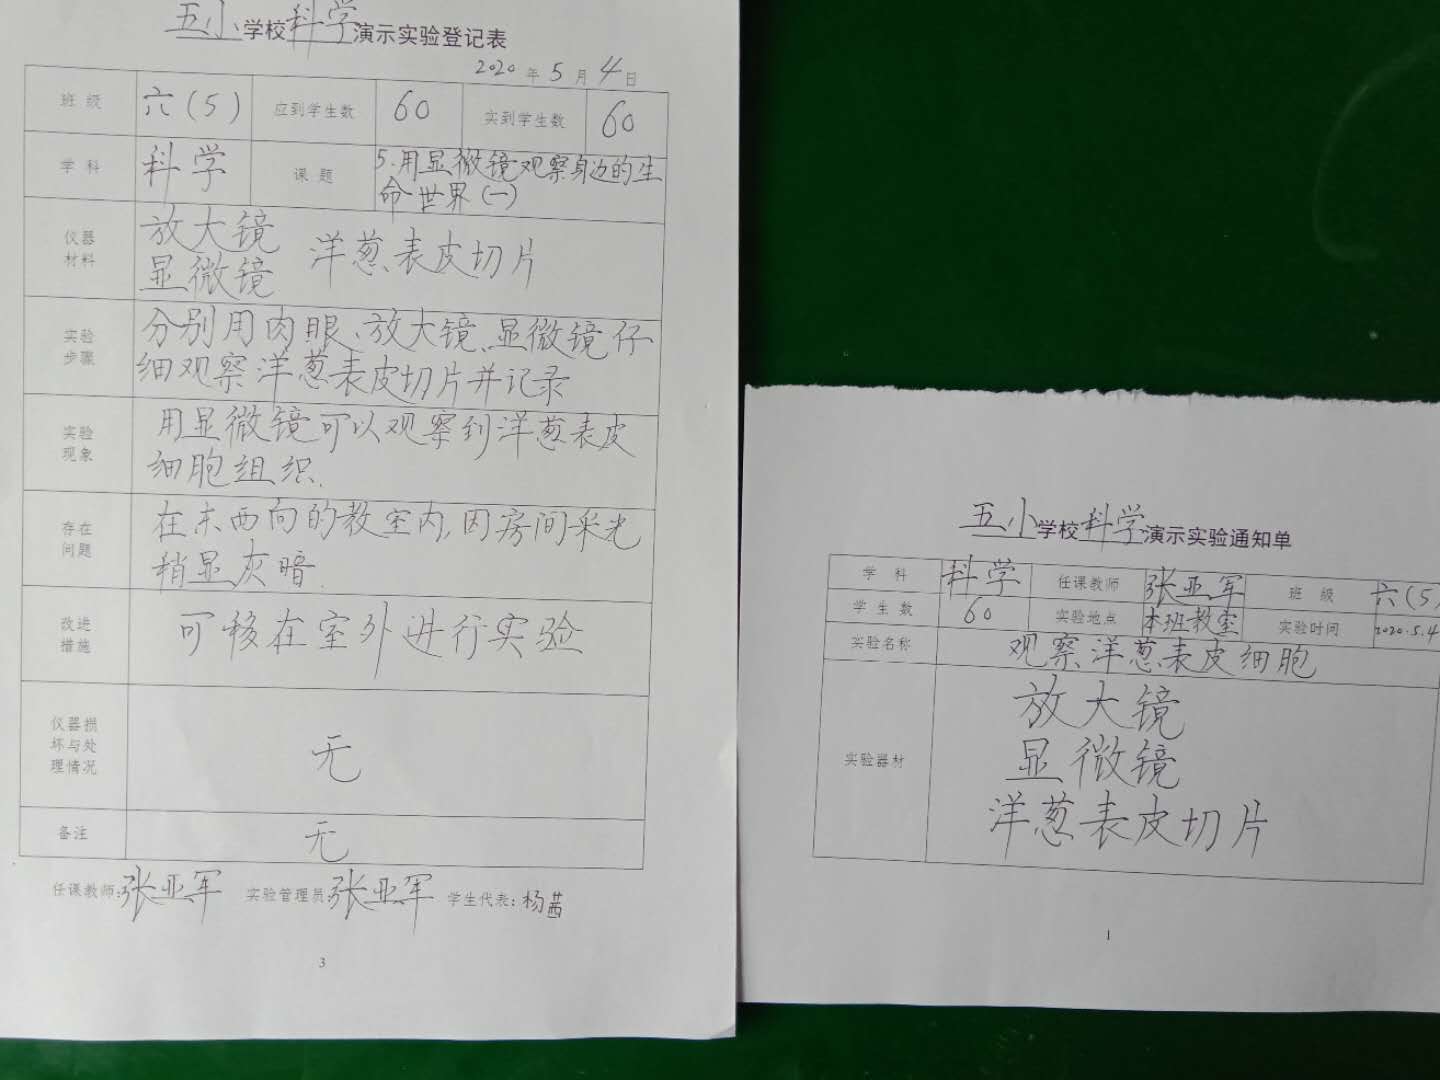 五小学校科学演示实验登记表
2020 年 5 月 4 日
班 级 六(5) 应到学生数 60 实到学生数 60
学 科 科学 课 题 5.用显微镜观察身边的生
命世界(一)
仪器
材料
放大镜 洋葱表皮切片
显微镜
实验
步骤
分别用肉眼、放大镜、显微镜仔
细观察洋葱表皮切片并记录
实验
现象
用显微镜可以观察到洋葱表皮
细胞组织.
存在
问题
在东西向的教室内,因房间采光
稍显灰暗.
改进
措施
可移在室外进行实验
仪器损
坏与处
理情况
无
备注 无
任课教师:张亚军 实验管理员:张亚军 学生代表:杨茜
3
五小学校科学演示实验通知单
学 科 科学 任课教师 张亚军 班 级 六(5)
学 生 数 60 实验地点 本班教室 实验时间 2020.5.4
实验名称 观察洋葱表皮细胞
实验器材
放大镜
显微镜
洋葱表皮切片
1